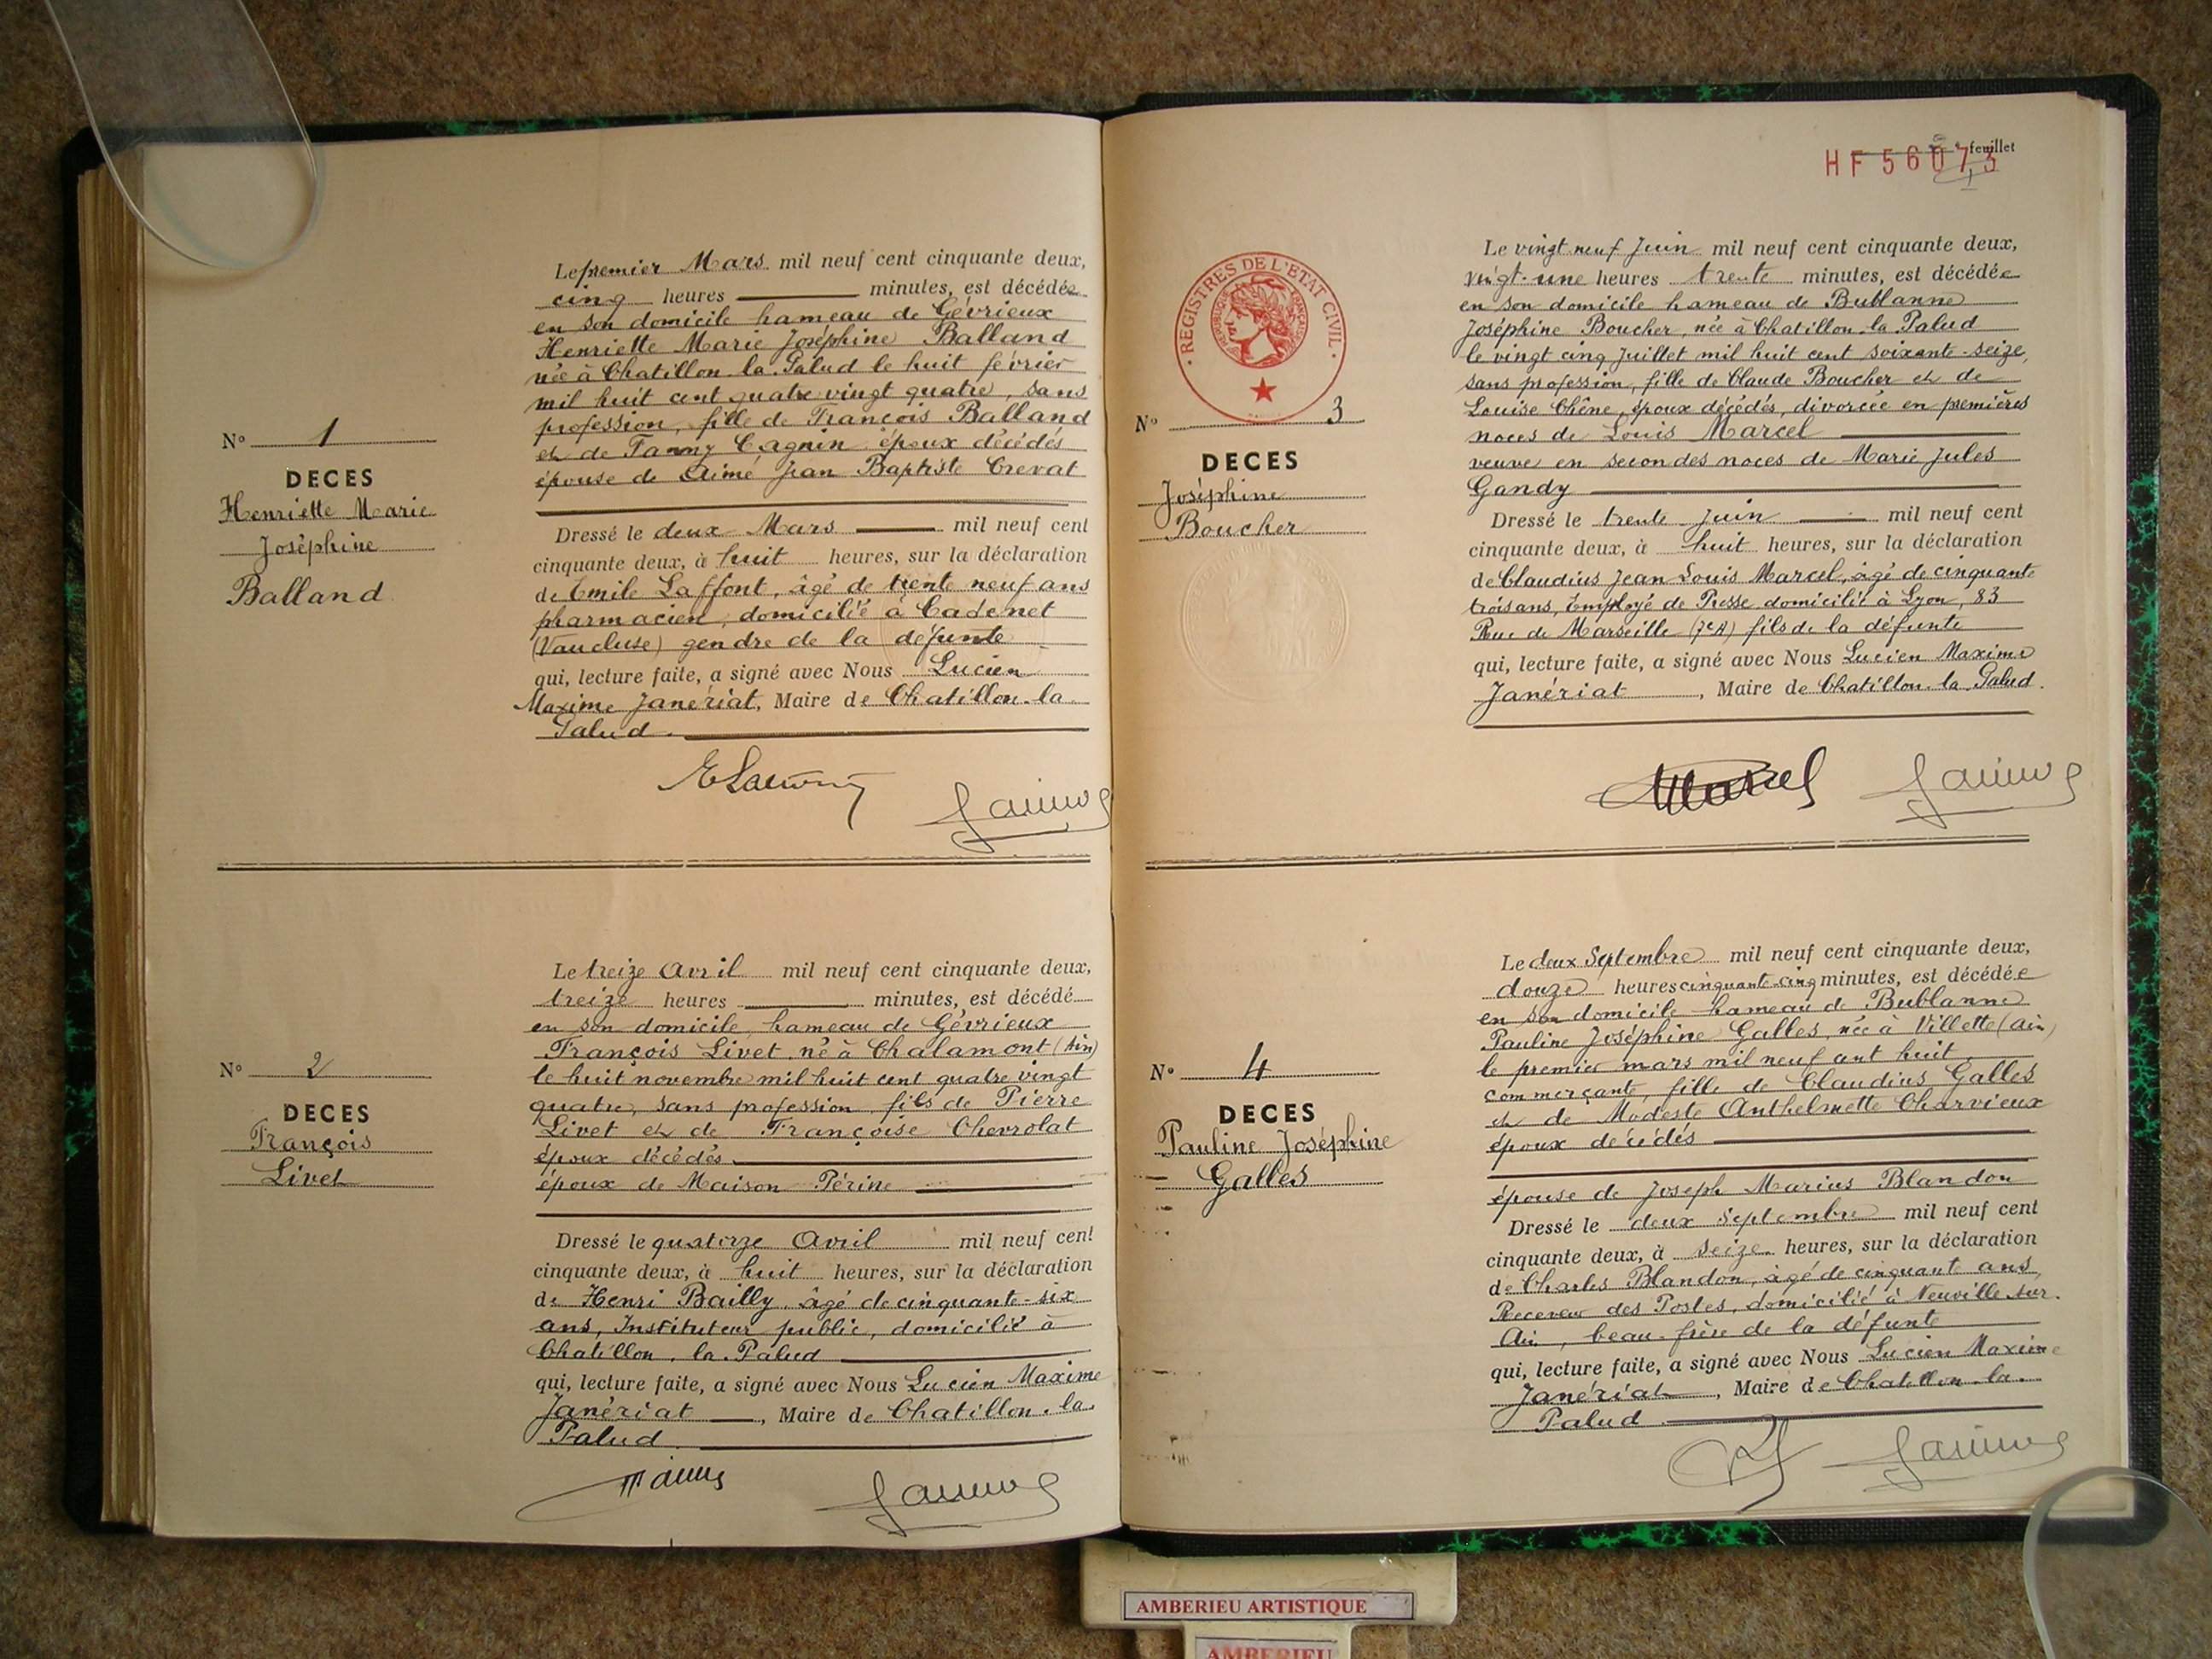 N° 1
DECES
Henriette Marie
Joséphine
Balland
Le premier Mars mil neuf cent cinquante deux,
cinq heures minutes, est décédée
en son domicile hameau de Gévrieux
Henriette Marie Joséphine Balland
née à Chatillon-la-Palud le huit février
mil huit cent quatre vingt quatre, sans
profession, fille de François Balland
et de Fanny Cagnin époux décédés
épouse de Aimé Jean Baptiste Crevat
Dressé le deux Mars mil neuf cent
cinquante deux, à huit heures, sur la déclaration
de Emile Laffont, âgé de trente neuf ans
pharmacien, domicilié à Cadenet
(Vaucluse) gendre de la défunte
qui, lecture faite, a signé avec Nous Lucien
Maxime Janériat, Maire de Chatillon-la-
Palud.
N° 2
DECES
François
Livet
Le treize Avril mil neuf cent cinquante deux,
treize heures minutes, est décédé
en son domicile, hameau de Gévrieux
François Livet, né à Chalamont (Ain)
le huit novembre mil huit cent quatre vingt
quatre, sans profession, fils de Pierre
Livet et de Françoise Chevrolat
époux décédés
époux de Maison Périne
Dressé le quatorze Avril mil neuf cent
cinquante deux, à huit heures, sur la déclaration
de Henri Bailly, âgé de cinquante-six
ans, Instituteur public, domicilié à
Chatillon-la-Palud
qui, lecture faite, a signé avec Nous Lucien Maxime
Janériat, Maire de Chatillon-la-
Palud.
feuillet
HF 56073
REGISTRES DE L'ETAT CIVIL
REPUBLIQUE FRANÇAISE
N° 3
DECES
Joséphine
Boucher
Le vingt neuf Juin mil neuf cent cinquante deux,
vingt-une heures trente minutes, est décédée
en son domicile hameau de Bublanne
Joséphine Boucher, née à Chatillon-la-Palud
le vingt cinq Juillet mil huit cent soixante-seize,
sans profession, fille de Claude Boucher et de
Louise Chêne, époux décédés, divorcée en premières
noces de Louis Marcel
veuve en secondes noces de Marie Jules
Gandy
Dressé le trente Juin mil neuf cent
cinquante deux, à huit heures, sur la déclaration
de Claudius Jean Louis Marcel, âgé de cinquante
trois ans, Employé de Presse domicilié à Lyon, 83
Rue de Marseille (7e A) fils de la défunte
qui, lecture faite, a signé avec Nous Lucien Maxime
Janériat, Maire de Chatillon-la-Palud.
Marcel
N° 4
DECES
Pauline Joséphine
Galles
Le deux Septembre mil neuf cent cinquante deux,
douze heures cinquante-cinq minutes, est décédée
en son domicile hameau de Bublanne
Pauline Joséphine Galles, née à Villette (Ain)
le premier mars mil neuf cent huit,
commerçante, fille de Claudius Galles
et de Modeste Anthelmette Charvieux
époux décédés
épouse de Joseph Marius Blandon
Dressé le deux Septembre mil neuf cent
cinquante deux, à seize heures, sur la déclaration
de Charles Blandon, âgé de cinquant ans,
Receveur des Postes, domicilié à Neuville-sur-
Ain, beau-frère de la défunte
qui, lecture faite, a signé avec Nous Lucien Maxime
Janériat, Maire de Chatillon-la-
Palud.
AMBERIEU ARTISTIQUE
AMBERIEU